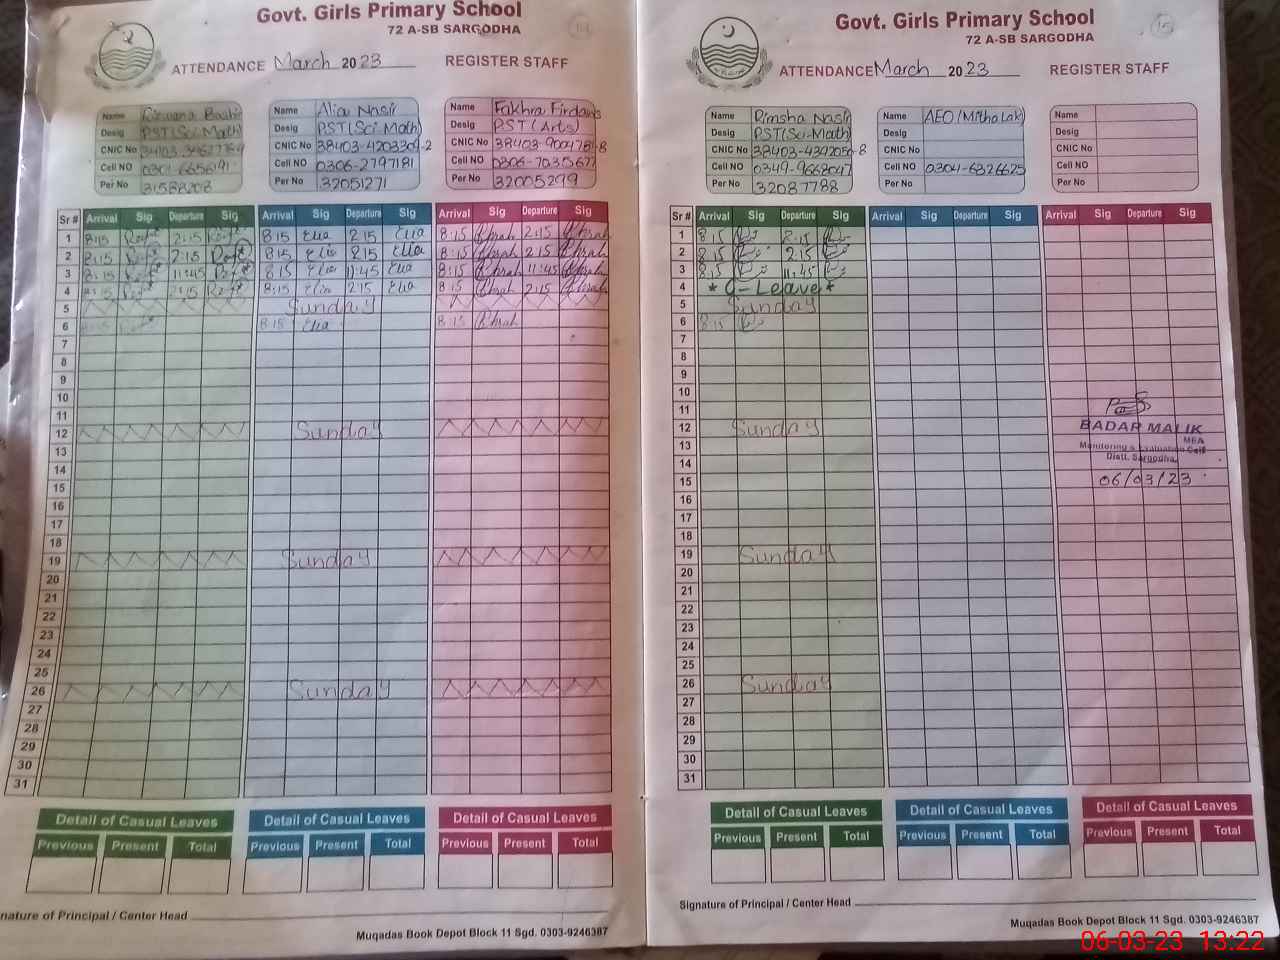 Govt. Girls Primary School
72 A-SB SARGODHA
ATTENDANCE March 2023 REGISTER STAFF
Name Rizwana Bashir
Desig PST(Sci-Math)
CNIC No
Cell NO 0301-6656191
Per No 31588208
Name Alia Nasir
Desig PST(Sci-Math)
CNIC No 38403-4203304-2
Cell NO 0306-2797181
Per No 32051271
Name Fakhra Firdous
Desig PST (Arts)
CNIC No 38403-9004781-8
Cell NO 0306-7035677
Per No 32005299
Sr # Arrival Sig Departure Sig Arrival Sig Departure Sig Arrival Sig Departure Sig
1 8:15 2:15 8:15 Elia 2:15 Elia 8:15 2:15
2 8:15 2:15 8:15 Elia 2:15 Elia 8:15 2:15
3 8:15 11:45 8:15 Elia 11:45 Elia 8:15 11:45
4 8:15 2:15 8:15 Elia 2:15 Elia 8:15 2:15
5 Sunday
6 8:15 8:15 Elia 8:15
7
8
9
10
11
12 Sunday
13
14
15
16
17
18
19 Sunday
20
21
22
23
24
25
26 Sunday
27
28
29
30
31
Detail of Casual Leaves Detail of Casual Leaves Detail of Casual Leaves
Previous Present Total Previous Present Total Previous Present Total
nature of Principal / Center Head
Muqadas Book Depot Block 11 Sgd. 0303-9246387
Govt. Girls Primary School
72 A-SB SARGODHA
ATTENDANCE March 2023 REGISTER STAFF
Name Rimsha Nasir
Desig PST(Sci-Math)
CNIC No 38403-4342050-8
Cell NO 0349-9668047
Per No 32087788
Name AEO (Mitha Lak)
Desig
CNIC No
Cell NO 0304-6326625
Per No
Name
Desig
CNIC No
Cell NO
Per No
Sr # Arrival Sig Departure Sig Arrival Sig Departure Sig Arrival Sig Departure Sig
1 8:15 2:15
2 8:15 2:15
3 8:15 11:45
4 * C-Leave *
5 Sunday
6 8:15
7
8
9
10
11
12 Sunday
13
14
15
16
17
18
19 Sunday
20
21
22
23
24
25
26 Sunday
27
28
29
30
31
BADAR MALIK
MEA
Monitoring & Evaluation Cell
Distt. Sargodha.
06/03/23
Detail of Casual Leaves Detail of Casual Leaves Detail of Casual Leaves
Previous Present Total Previous Present Total Previous Present Total
Signature of Principal / Center Head
Muqadas Book Depot Block 11 Sgd. 0303-9246387
06-03-23 13:22